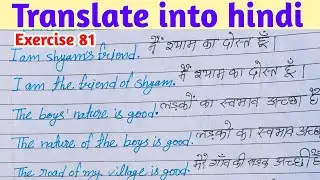 Translate into hindi
Exercise 81
मैं श्याम का दोस्त हूँ।
I am shyam's friend.
मैं श्याम का दोस्त हूँ।
I am the friend of shyam.
लड़कों का स्वभाव अच्छा है
The boys' nature is good.
लड़कों का स्वभाव अच्छा
The nature of the boys is good.
मेरे गाँव की सड़क अच्छी है
The road of my village is good.